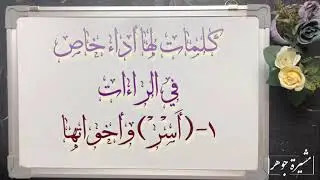 كلمات لها أداء خاص
في الراءات
١- (أَسْرِ) وأخواتها
مشيرة جوهر